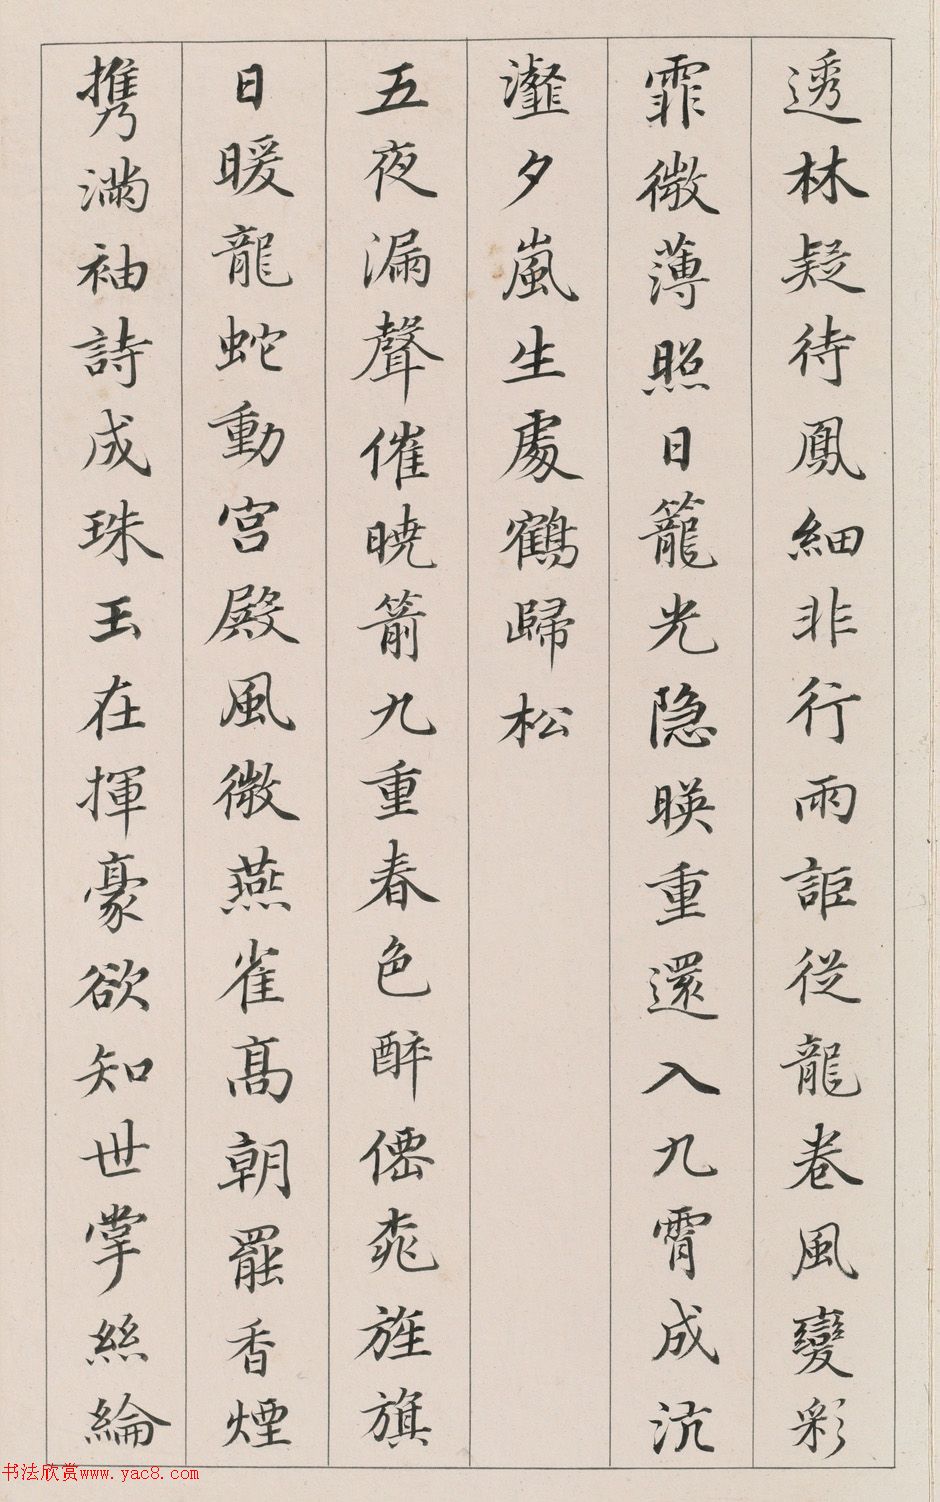 透林疑待鳳細非行雨詎從龍卷風變彩
霏微薄照日籠光隐暎重還入九霄成沆
瀣夕嵐生處鶴歸松
五夜漏聲催曉箭九重春色醉僊桃旌旗
日暖龍蛇動宮殿風微燕雀高朝罷香煙
携滿袖詩成珠玉在揮豪欲知世掌絲綸
书法欣赏www.yac8.com